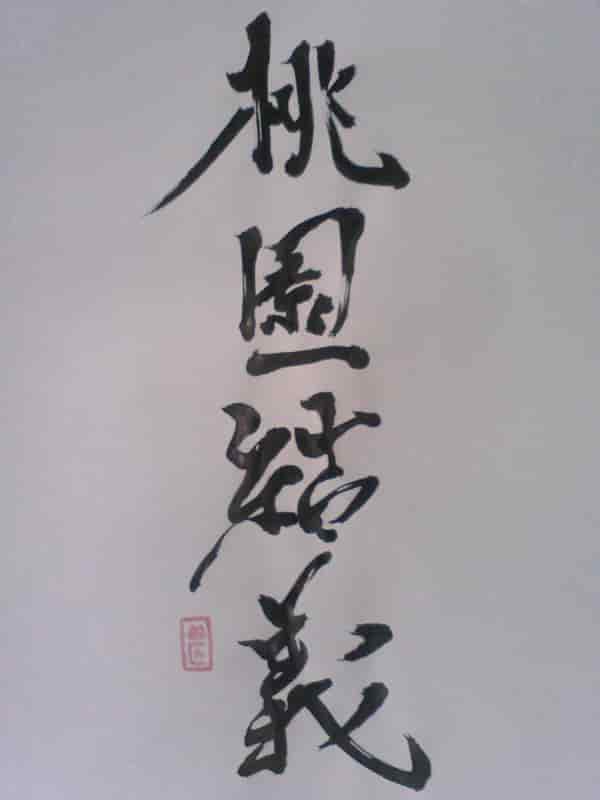 桃園結義